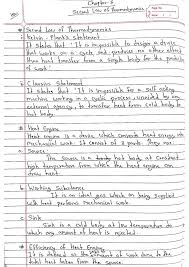 Chapter-2
Second Law of Thermodynamics
Second Law of Thermodynamics
Kelvin - Plank's Statement
It states that "It is impossible to design a device
that works on a cycle and produce no other effect
than heat transfer from a single body for the produce
of work.
Clausius Statement
It states that "It is impossible for a self acting
machine working in a cyclic process, unaided by any
external agency to transfer heat from cold body to
hot body.
Heat Engine
Heat engine is a device which converts heat energy into
mechanical work. It consist of 3 parts. They are:
a. Source:
The Source is a hot body at constant
high temperature from which the heat engine can
draw heat.
b. Working Substance
It is an ideal gas which on being supplied
with heat perform mechanical work.
c. Sink
Sink is a cold body at low temperature to
which any amount of heat is rejected.
Efficiency of Heat Engine
It is defined as the amount of work done to the
total heat taken from the source.